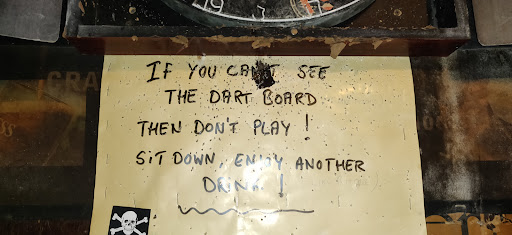 19
CRA
IF YOU CAN'T SEE
THE DART BOARD
THEN DON'T PLAY !
SIT DOWN, ENJOY ANOTHER
DRINK !